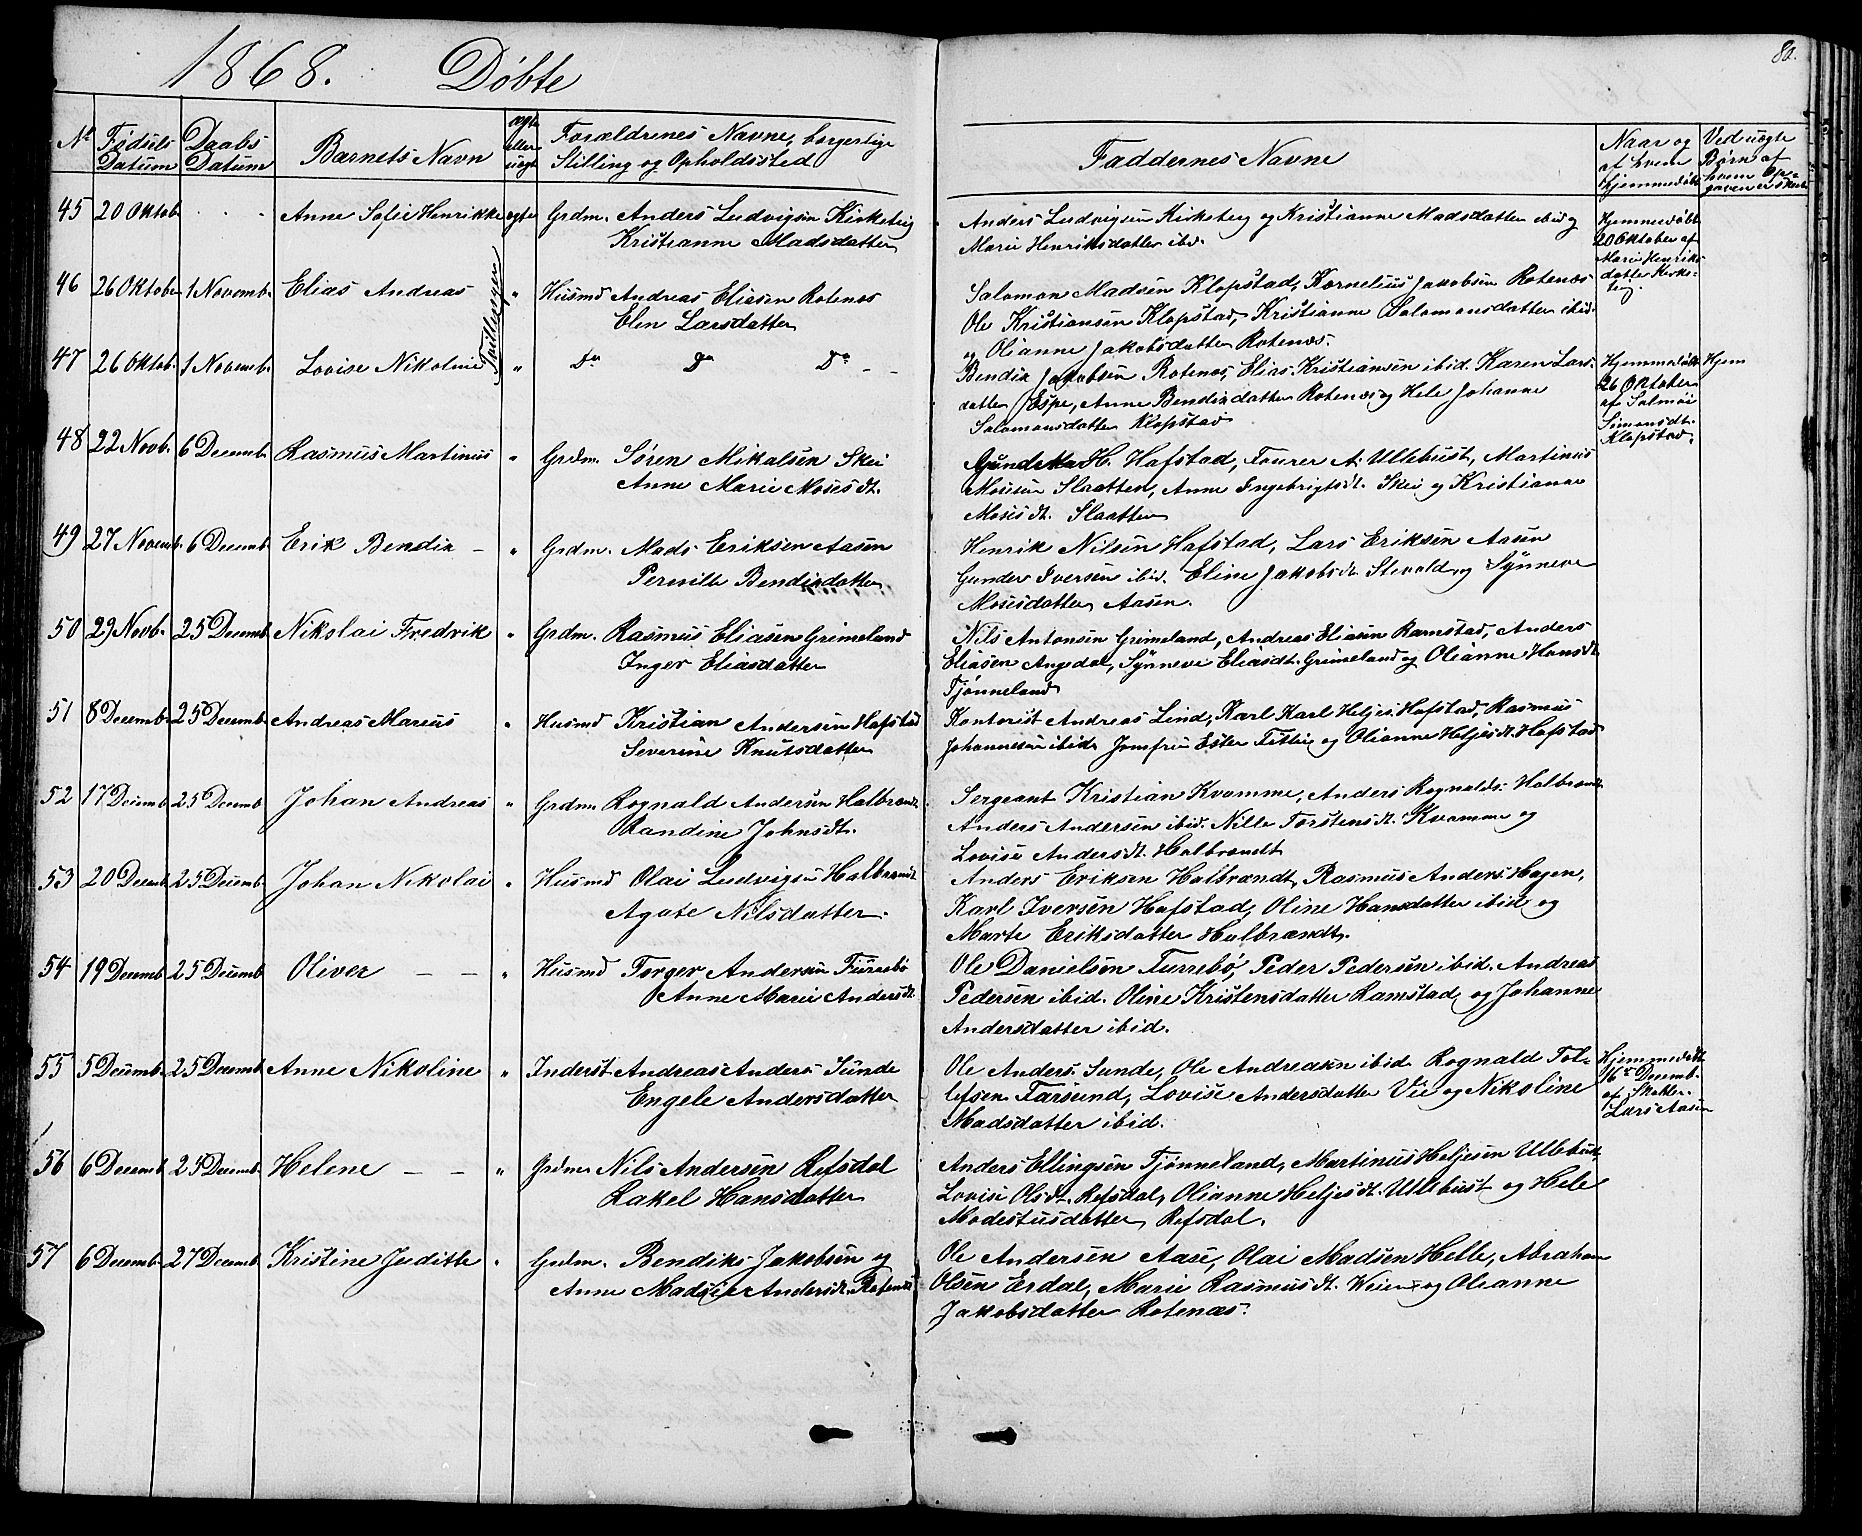 1868. Døbte
80.
No Fødsels Datum Daabs Datum Barnets Navn ægte eller uægte Forældrenes Navne, borgerlige Stilling og Opholdssted Faddernes Navne Naar og af hvem Hjemmedøbt Ved uægte Børn af hvem Opgaven er skeet
45 20 Oktob. . . Anne Sofie Henrikke ægte Grdm. Anders Ludvigsen Kirketeig
Kristianne Madsdatter
Anders Ludvigsen Kirketeig og Kristianne Madsdatter ibid og
Marie Henriksdatter ibid.
Hjemmedøbt
20 Oktober af
Marie Henriks-
datter Kirke-
teig.
46 26 Oktober 1 Novemb. Elias Andreas Tvillinger " Husmd Andreas Eliasen Rotenæs
Elen Larsdatter
Salomon Madsen Klopstad, Kornelius Jakobsen Rotenæs
Ole Kristiansen Klopstad, Kristianne Salomonsdatter ibid.
og Olianne Jakobsdatter Rotenæs.
47 26 Oktob. 1 Novemb. Lovise Nikoline " Do Do Do - -
Bendix Jakobsen Rotenæs, Elias Kristiansen ibid. Karen Lars-
datter Espe, Anne Bendixdatter Rotenæs og Hele Johanne
Salomonsdatter Klopstad
Hjemmedøbt
26 Oktober
af Salmoi
Simonsdt.
Klopstad.
Hjem
48 22 Novb. 6 Decemb. Rasmus Martinus " Grdm. Søren Mikalsen Skei
Anne Marie Mosesdt.
H. Hafstad, A. Ullebust, Martinus
Mosesen Slaatten, Anne Ingebrigtsdt. Skei og Kristianne
Mosesdt. Slaatten
49 27 Novemb. 6 Decemb. Erik Bendix - " Grdm. Mads Eriksen Aasen
Pernille Bendixdatter
Henrik Nilsen Hafstad, Lars Eriksen Aasen
Gunder Iversen ibid. Eline Jakobsdt. Stevald og Synneve
Mosesdatter Aasen.
50 29 Novb. 25 Decemb. Nikolai Fredrik " Grdm. Rasmus Eliasen Grimeland
Inger Eliasdatter
Nils Antonsen Grimeland, Andreas Eliasen Ramstad, Anders
Eliasen Angedal, Synneve Eliasdt. Grimeland og Olianne Hansdt.
Tjønneland
51 8 Decemb. 25 Decemb. Andreas Marius " Husmd Kristian Andersen Hafstad
Severine Knutsdatter
Kontorist Andreas Lind, Karl Karl Heljes. Hafstad, Rasmus
Johannesen ibid. Jomfru Ester og Olianne Heljesdt. Hafstad
52 17 Decemb. 25 Decemb. Johan Andreas " Grdm. Rognald Andersen Halbrendt.
Randine Johnsdt.
Sergeant Kristian Kvamme, Anders Rognalds. Halbrendt.
Anders Andersen ibid. Nille Torstensdt. Kvamme og
Lovise Andersdt. Halbrendt
53 20 Decemb. 25 Decemb. Johan Nikolai " Husmd Olai Ludvigsen Halbrendt
Agate Nilsdatter.
Anders Eriksen Halbrændt, Rasmus Anders. Hagen,
Karl Iversen Hafstad, Oline Hansdatter ibid og
Marte Eriksdatter Halbrændt.
54 19 Decemb 25 Decemb Oliver - - " Husmd Torger Andersen Furrebø
Anne Marie Andersdt.
Ole Danielsen Furrebø, Peder Pedersen ibid. Andreas
Pedersen ibid. Oline Kristensdatter Ramstad og Johanne
Andersdatter ibid.
55 5 Decemb. 25 Decemb. Anne Nikoline " Inderst Andreas Anders. Sunde
Engele Andersdatter
Ole Anders. Sunde, Ole Andreasen ibid. Rognald Tol-
lefsen Farsund, Lovise Andersdatter Vie og Nikoline
Madsdatter ibid.
Hjemmedøbt
16de Decemb.
af Skoleh.
Lars Aasen
56 6 Decemb 25 Decemb. Helene - - " Grdm Nils Andersen Refsdal
Rakel Hansdatter
Anders Ellingsen Tjønneland, Martinus Heljesen Ullebust,
Lovise Olsdt. Refsdal, Olianne Heljesdt. Ullebust og Hele
Modestusdatter Refsdal.
57 6 Decemb. 27 Decemb. Kristine Juditte " Grdm. Bendiks Jakobsen og
Anne Madsie Andersdt. Rotenæs
Ole Andersen Aase, Olai Madsen Helle, Abraham
Olsen Erdal, Marie Rasmusdt. Weien og Olianne
Jakobsdatter Rotenæs.